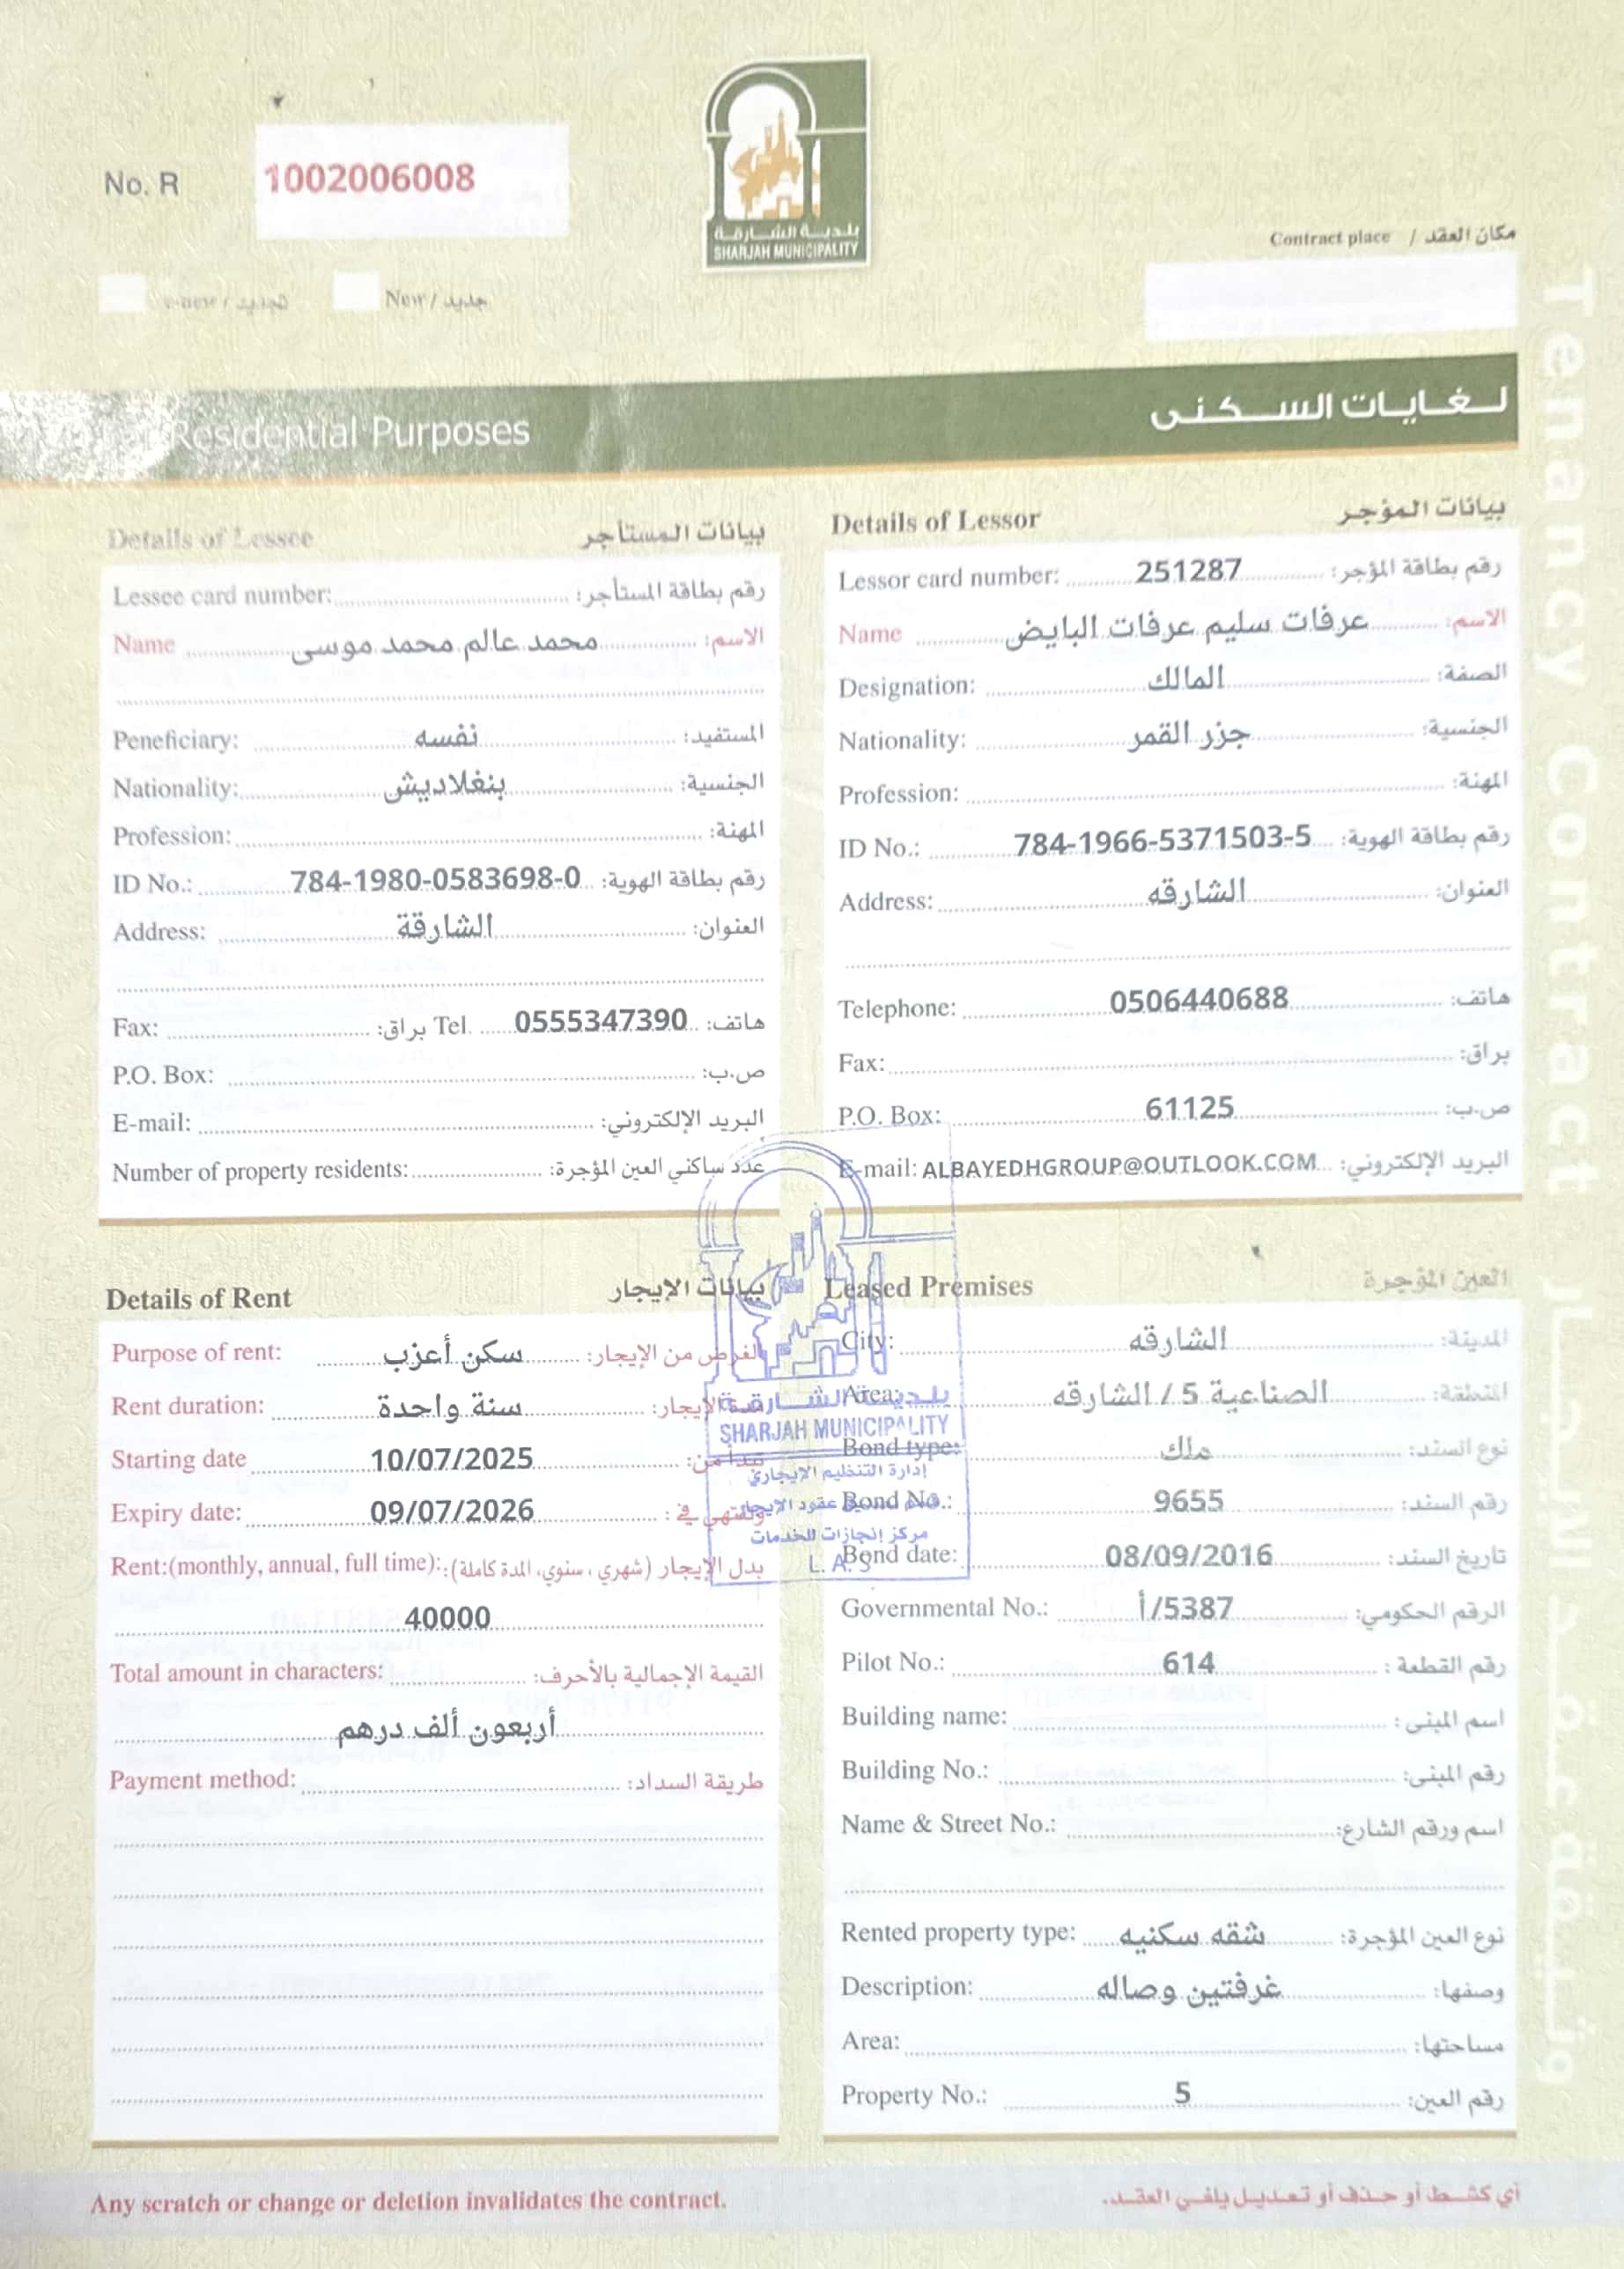 No. R 1002006008
بلدية الشارقة
SHARJAH MUNICIPALITY
Contract place / مكان العقد
New / جديد
Residential Purposes
لغايات السكنى
Tenancy Contract
Details of Lessee بيانات المستأجر
Lessee card number: رقم بطاقة المستأجر:
Name محمد عالم محمد موسى الاسم:
Peneficiary: نفسه المستفيد:
Nationality: بنغلاديش الجنسية:
Profession: المهنة:
ID No.: 784-1980-0583698-0 رقم بطاقة الهوية:
Address: الشارقة العنوان:
Fax: براق: Tel. 0555347390 هاتف:
P.O. Box: ص.ب:
E-mail: البريد الإلكتروني:
Number of property residents: عدد ساكني العين المؤجرة:
Details of Lessor بيانات المؤجر
Lessor card number: 251287 رقم بطاقة المؤجر:
Name عرفات سليم عرفات البايض الاسم:
Designation: المالك الصفة:
Nationality: جزر القمر الجنسية:
Profession: المهنة:
ID No.: 784-1966-5371503-5 رقم بطاقة الهوية:
Address: الشارقه العنوان:
Telephone: 0506440688 هاتف:
Fax: براق:
P.O. Box: 61125 ص.ب:
E-mail: ALBAYEDHGROUP@OUTLOOK.COM البريد الإلكتروني:
Details of Rent بيانات الإيجار
Purpose of rent: سكن أعزب الغرض من الإيجار:
Rent duration: سنة واحدة الإيجار:
Starting date 10/07/2025
Expiry date: 09/07/2026 وتنتهي في :
Rent:(monthly, annual, full time): بدل الإيجار (شهري، سنوي، المدة كاملة):
40000
Total amount in characters: القيمة الإجمالية بالأحرف:
أربعون ألف درهم
Payment method: طريقة السداد:
بلدية الشارقة
SHARJAH MUNICIPALITY
إدارة التنظيم الايجاري
عقود الايجار
مركز إنجازات للخدمات
L. A. S
Leased Premises العين المؤجرة
City: الشارقه المدينة:
Area: الصناعية 5 / الشارقه المنطقة:
Bond type: ملك نوع السند:
Bond No.: 9655 رقم السند:
Bond date: 08/09/2016 تاريخ السند:
Governmental No.: أ/5387 الرقم الحكومي:
Pilot No.: 614 رقم القطعة :
Building name: اسم المبنى :
Building No.: رقم المبنى:
Name & Street No.: اسم ورقم الشارع:
Rented property type: شقه سكنيه نوع العين المؤجرة:
Description: غرفتين وصاله وصفها:
Area: مساحتها:
Property No.: 5 رقم العين:
Any scratch or change or deletion invalidates the contract.
أي كشط أو حذف أو تعديل يلغي العقد.